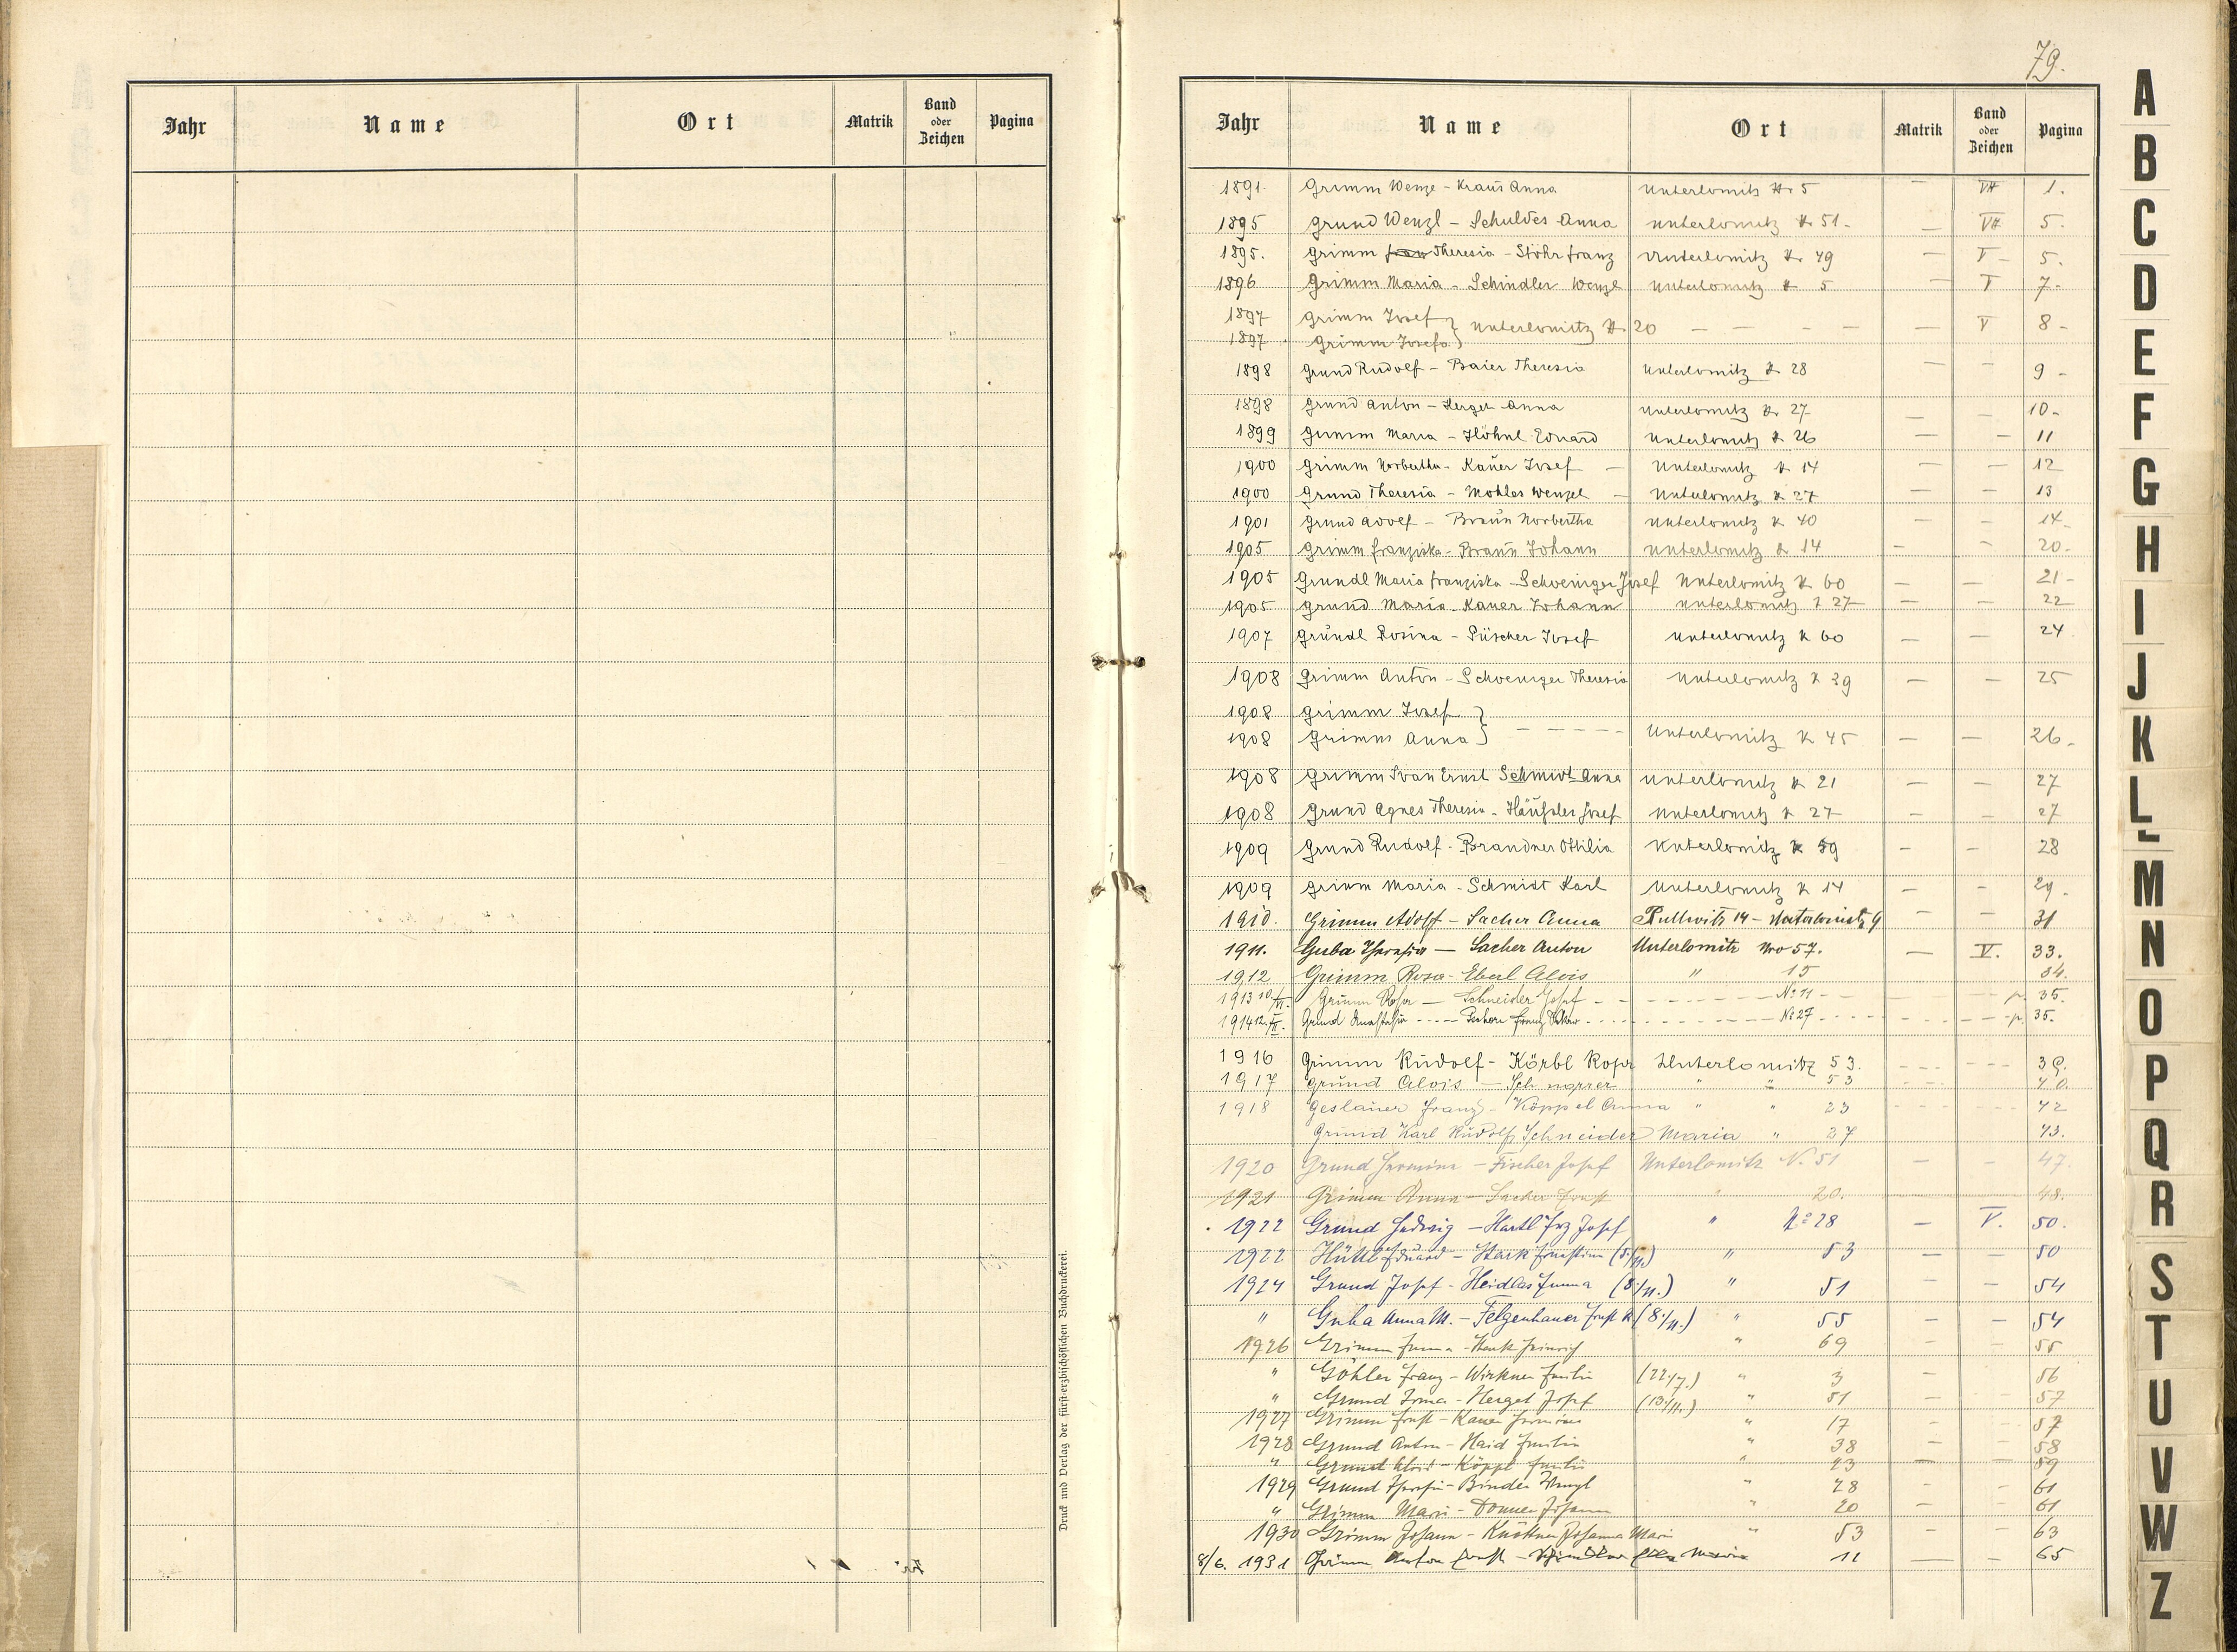 Jahr Name Ort Matrik Band oder Zeichen Pagina
Druck und Verlag der fürst-erzbischöflichen Buchdruckerei.
79.
Jahr Name Ort Matrik Band oder Zeichen Pagina
1891. Grimm Wenze - Kraus Anna Unterlomitz № 5 — VII 1.
1895 Grund Wenzl - Schuldes Anna Unterlomitz № 51 - — VII 5.
1895. Grimm Theresia - Stöhr Franz Unterlomitz № 49 — V - 5.
1896 Grimm Maria - Schindler Wenzl Unterlomitz № 5 — V 7-
1897 Grimm Josef } Unterlomitz № 20 — — - - — — V 8 -
1897 Grimm Josefa }
1898 Grund Rudolf - Baier Theresia Unterlomitz № 28 — — 9 -
1898 Grund Anton - Herget Anna Unterlomitz № 27 — — 10-
1899 Grimm Maria - Höhnl Eduard Unterlomitz № 26 — — 11
1900 Grimm Norbertha - Kauer Josef — Unterlomitz № 14 — — 12
1900 Grund Theresia - Mohles Wenzel — Unterlomitz № 27 — — 13
1901 Grund Adolf - Braun Norbertha Unterlomitz № 40 — — 14-
1905 Grimm Franziska - Braun Johann Unterlomitz № 14 — — 20-
1905 Grundl Maria Franziska - Schweiniger Josef Unterlomitz № 60 — — 21-
1905 Grund Maria - Kauer Johann Unterlomitz № 27 — — 22
1907 Gründl Rosina - Püscher Josef Unterlomitz № 60 — — 24
1908 Grimm Anton - Schweniger Theresia Unterlomitz № 29 — — 25
1908 Grimm Josef }
1908 Grimm Anna } - - - - - Unterlomitz № 45 — — 26-
1908 Grimm Ernst Schmidt Anna Unterlomitz № 21 — — 27
1908 Grund Agnes Theresia - Häußler Josef Unterlomitz № 27 — — 27
1909 Grund Rudolf - Brandner Ottilia Unterlomitz № 59 — — 28
1909 Grimm Maria - Schmidt Karl Unterlomitz № 14 — — 29-
1910. Grimm Adolf - Sacher Anna 14 - Unterlomitz 9 — — 31
1911. Guba Theresia — Sacher Anton Unterlomitz Nro 57. — V. 33.
1912 Grimm Rosa - Eberl Alois " 15 34.
1913 Grimm Rosa — Schneider Josef - - - № 11 - - p. 35.
1914 Grund Anastasia - - - Franz - - - № 27 - - - p. 35.
1916 Grimm Rudolf - Körbl Rosa Unterlomitz 53. - - - - - - 39.
1917 Grund Alois — " " 53 - - - 40.
1918 Geslauer Franz - Köppel Anna " " 23 - - - - - - 42
Grund Karl Rudolf Schneider Maria " 27 43.
1920 Grund Hermine - Fischer Josef Unterlomitz N. 51 — — 47.
1921 Grimm Anna - Sacher Ernst " 20. 48.
1922 Grund Hedwig - Hartl Frz Josef " № 28 — V. 50.
1922 Hüttl Eduard - Stark Ernestine (5./11.) " 53 — — 50
1924 Grund Josef - Heidlas Emma (8./11.) " 51 — — 54
" Guba Anna M. - Felgenhauer Josef K (8./11.) " 55 — — 54
1926 Grimm Emma - Heinrich " 69 — — 55
" Göhler Franz - Wirkner Emilie (22./7.) " 3 — 56
" Grund Irma - Herget Josef (13./11.) " 51 — - 57
1927 Grimm Ernst - Kauer Hermine " 17 — — 57
1928 Grund Anton - Haid Emilie " 38 — — 58
" Grund Alois - Köppl Emilie " 23 — — 59
1929 Grund Theresia - Binder Wenzl " 28 - 61
" Grimm Marie - Donner Johann " 20 — - 61
1930 Grimm Johann - Knöttner Johanna Marie " 53 — — 63
8/6. 1931 Grimm Anton Ernst - Maria 11 — — 65
A
B
C
D
E
F
G
H
I
J
K
L
M
N
O
P
Q
R
S
T
U
V
W
Z